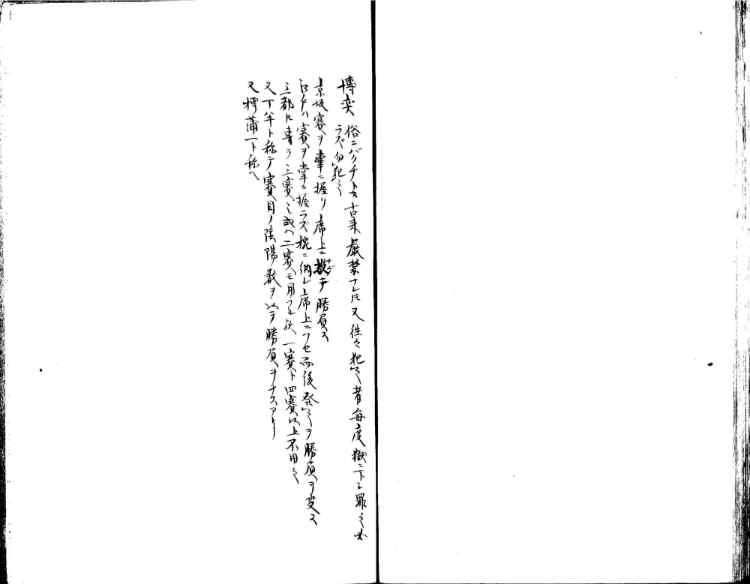 博奕 俗ニバクチト云 古来厳禁ナレドモ又往々犯之者毎度獄ニ下シ罪之必
ラズ勿犯之
京坂賽ヲ掌ニ握リ席上ニ投テ勝負ス
江戸ハ賽ヲ掌ニ握ラズ椀ニ納レ席上ニフセ而後発之テ勝負ヲ定ス
三都トモ専ラ三賽之或ハ二賽モ用フ 一賽ト四賽以上不用之
又丁半ト称テ賽目ノ陰陽数ヲ以テ勝負ヲナスアリ
又樗蒲一ト称ヘ